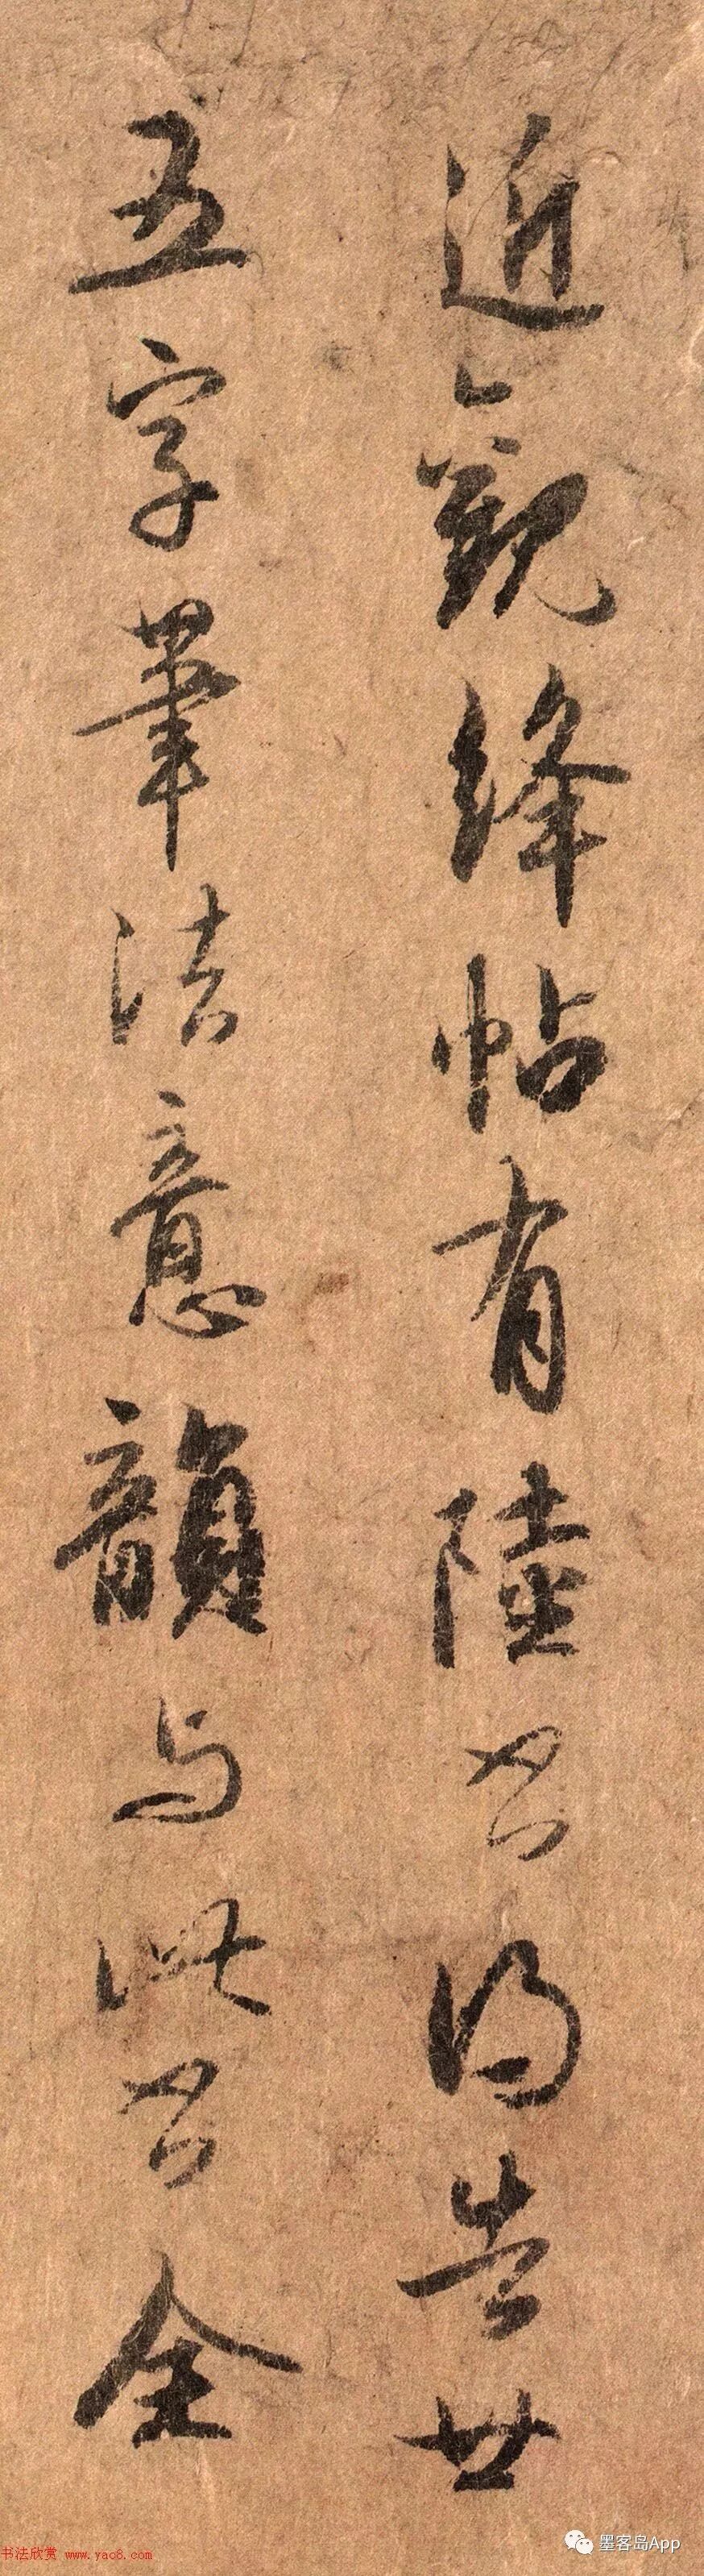 近觀絳帖有陸如得告廿
五字筆法意韻与此如全
书法欣赏 www.yac8.com
墨客岛App